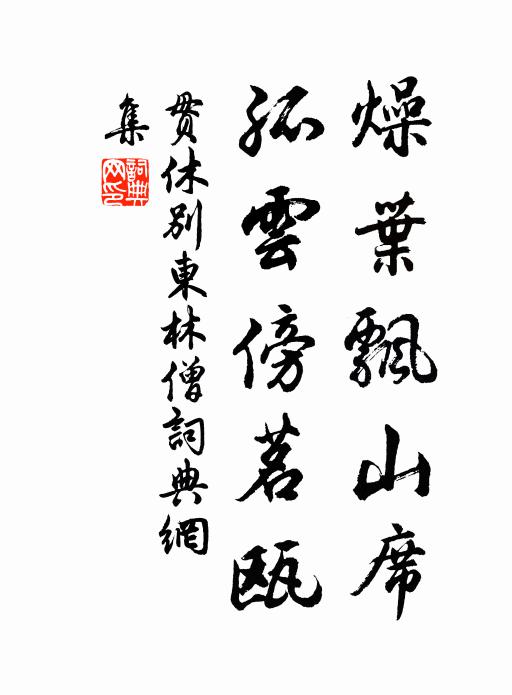 燥葉飄山席
孤雲傍茗甌
貫休別東林僧詞典網
集
詞典網印